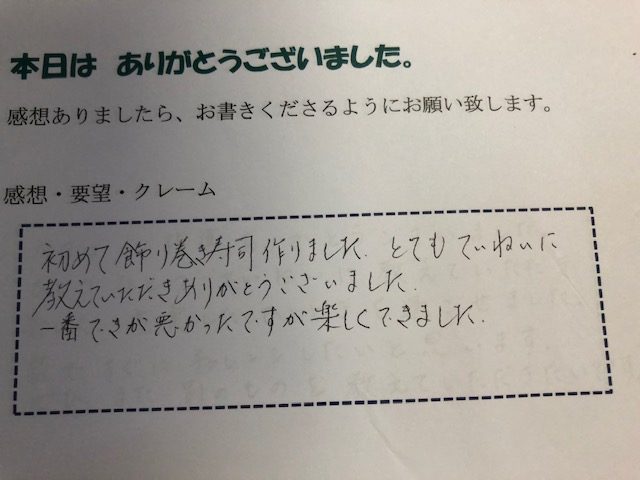 本日は ありがとうございました。
感想ありましたら、お書きくださるようにお願い致します。
感想・要望・クレーム
初めて飾り巻き寿司作りました. とても ていねいに
教えていただきありがとうございました.
一番できが悪かったですが楽しくできました.